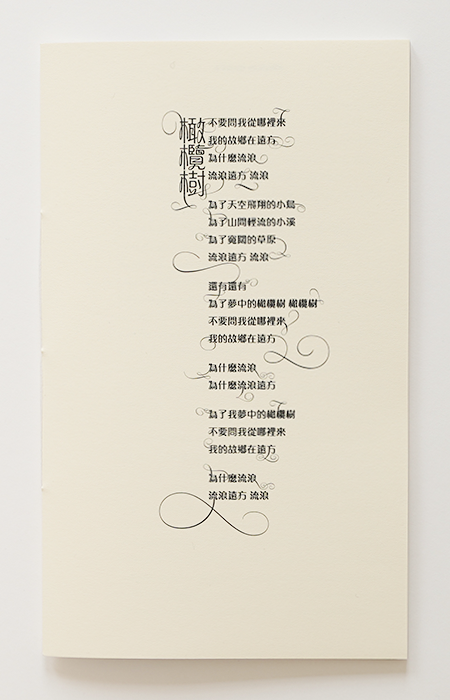 橄欖樹
不要問我從哪裡來
我的故鄉在遠方
為什麼流浪
流浪遠方 流浪
為了天空飛翔的小鳥
為了山間輕流的小溪
為了寬闊的草原
流浪遠方 流浪
還有還有
為了夢中的橄欖樹 橄欖樹
不要問我從哪裡來
我的故鄉在遠方
為什麼流浪
為什麼流浪遠方
為了我夢中的橄欖樹
不要問我從哪裡來
我的故鄉在遠方
為什麼流浪
流浪遠方 流浪